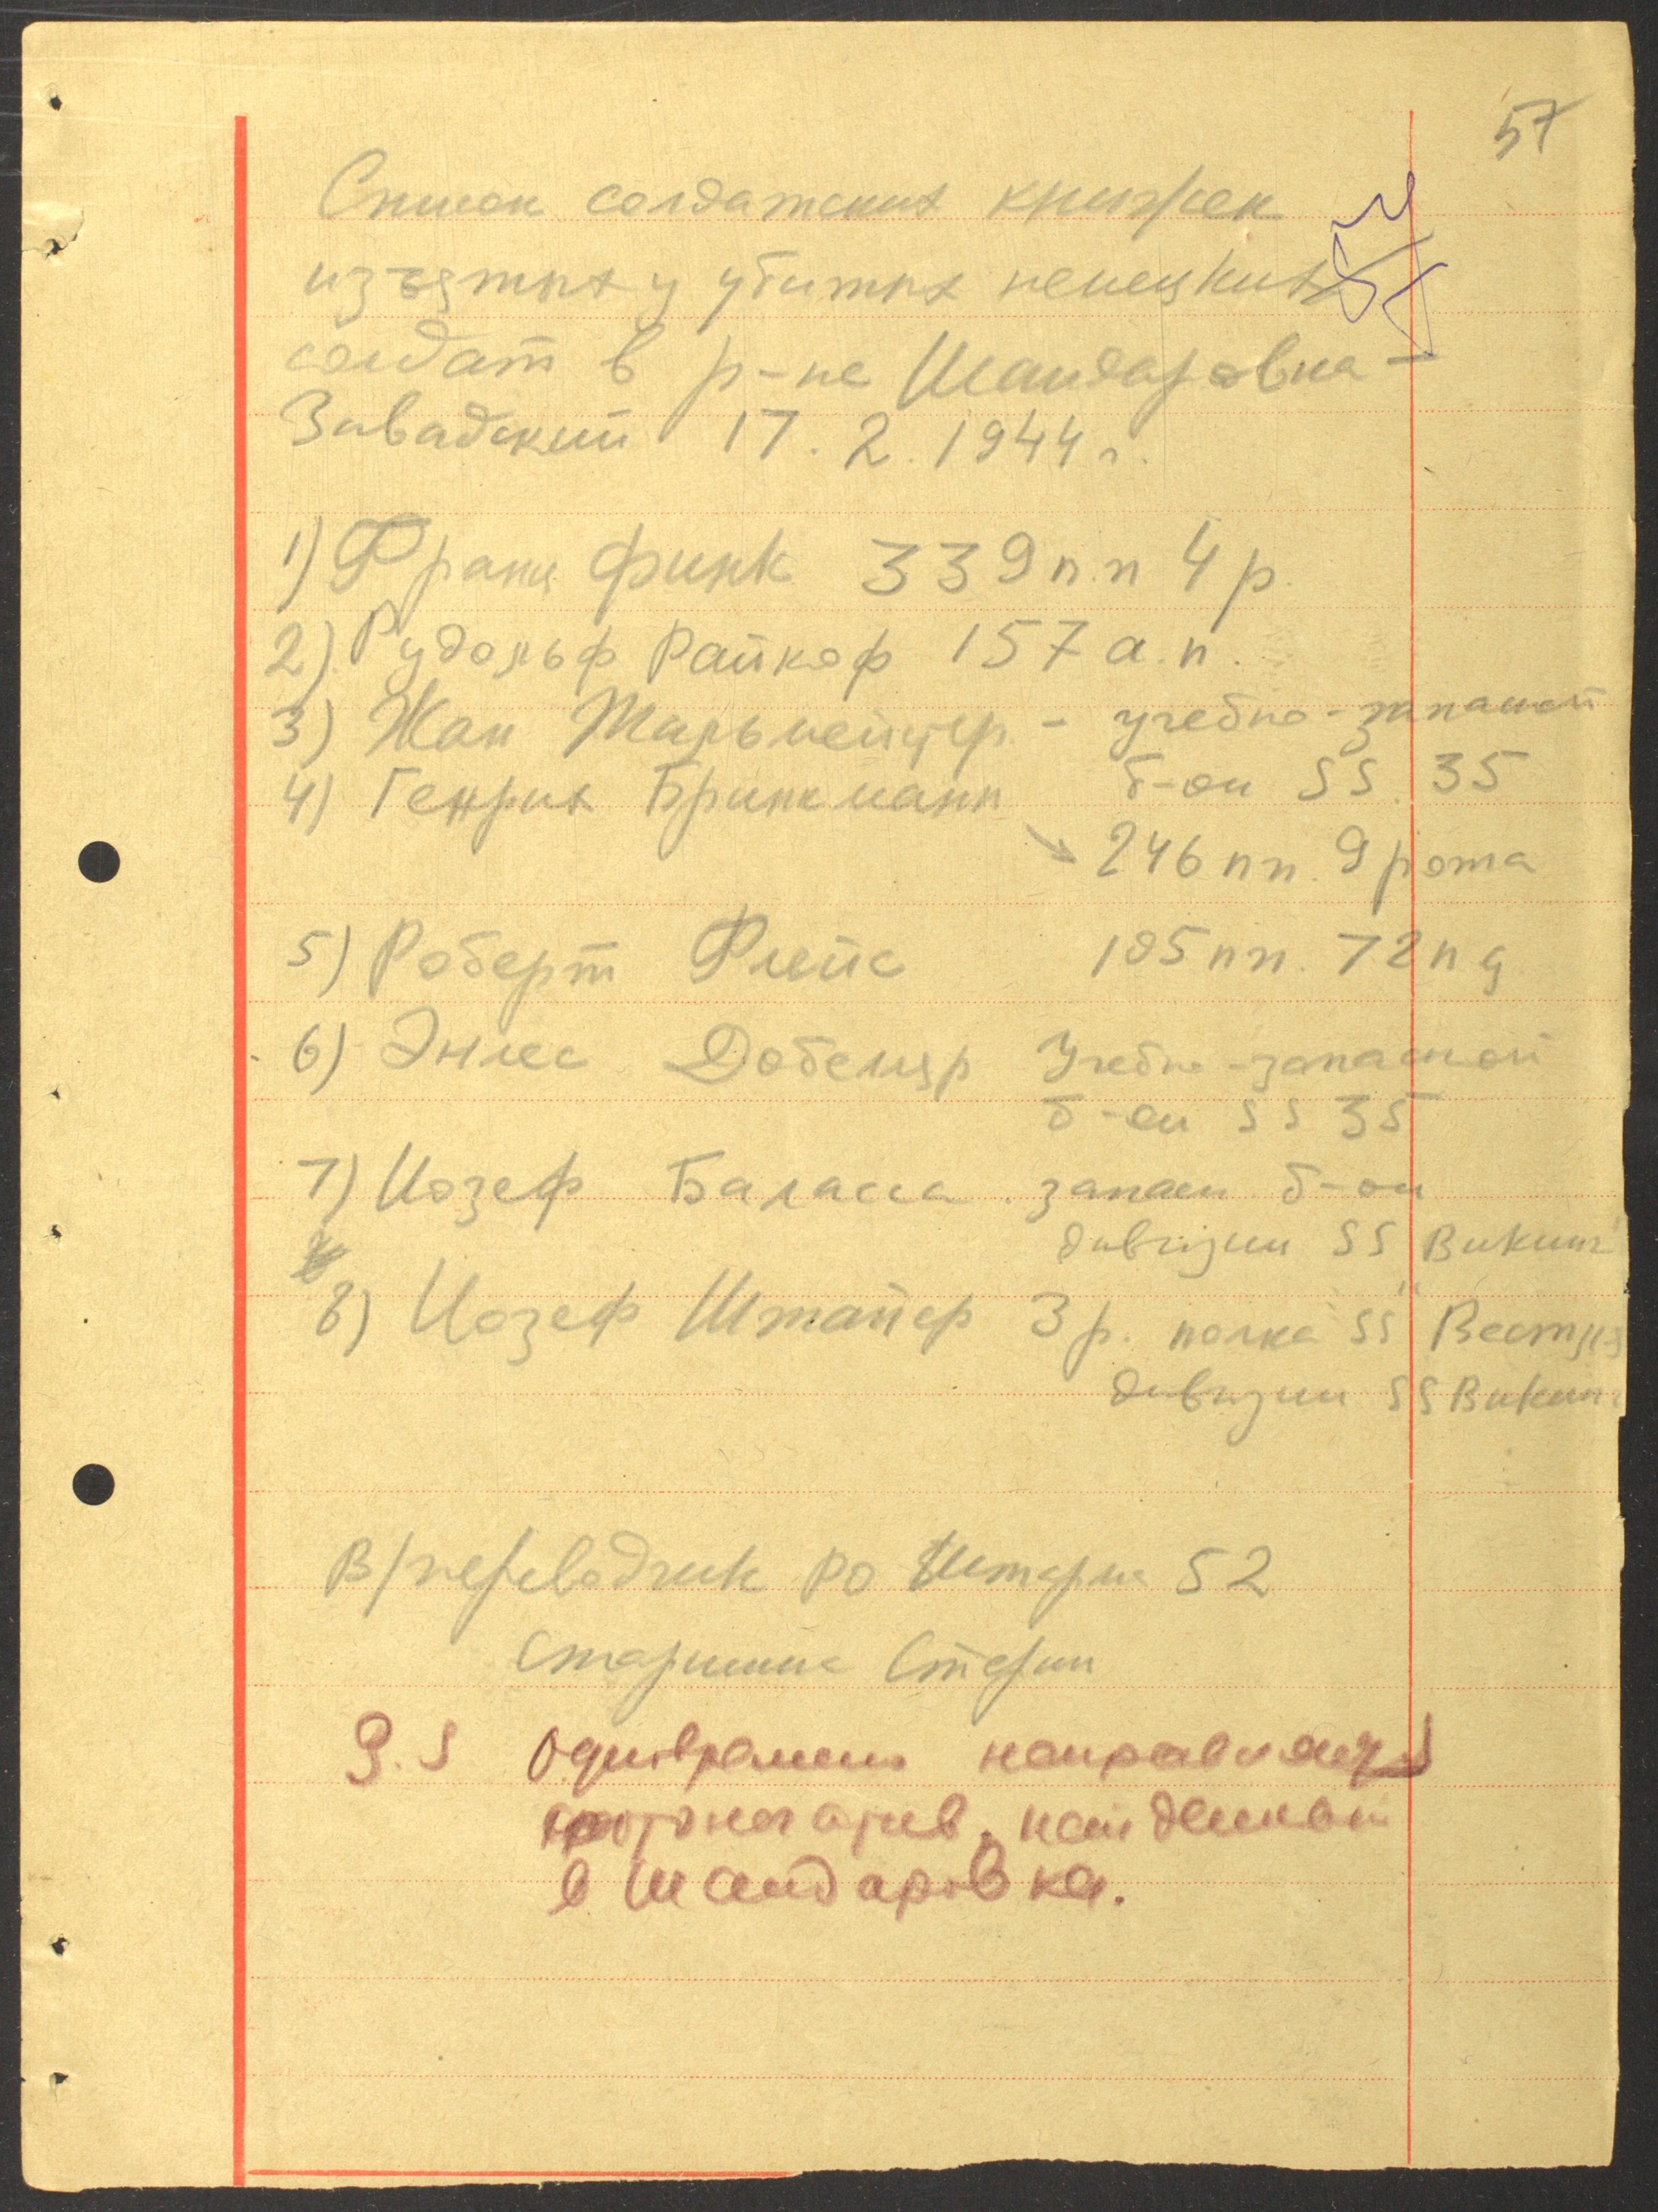 57
57
Список солдатских книжек
изъятых у убитых немецких
солдат в р-не Шандаровка -
Завадский 17.2.1944 г.
1) Франц Финк 339 п.п 4 р.
2) Рудольф Райкоф 157 а.п.
3) Жан - учебно-запасной
б-он SS 35
4) Генрих Бринкманн
→ 246 пп. 9 рота
5) Роберт Флейс 105 пп. 72 п д
6) Добеляр Учебно-запасной
б-он SS 35
7) Иозеф Баласса. запасн б-он
дивизии SS Викинг
8) Иозеф Штайер 3 р. полка SS "
дивизии SS Викинг
В/переводчик РО Штарма 52
Старшина Стерин
P.S Одновременно направляется
фотонегатив, найденный
в Шандаровка.